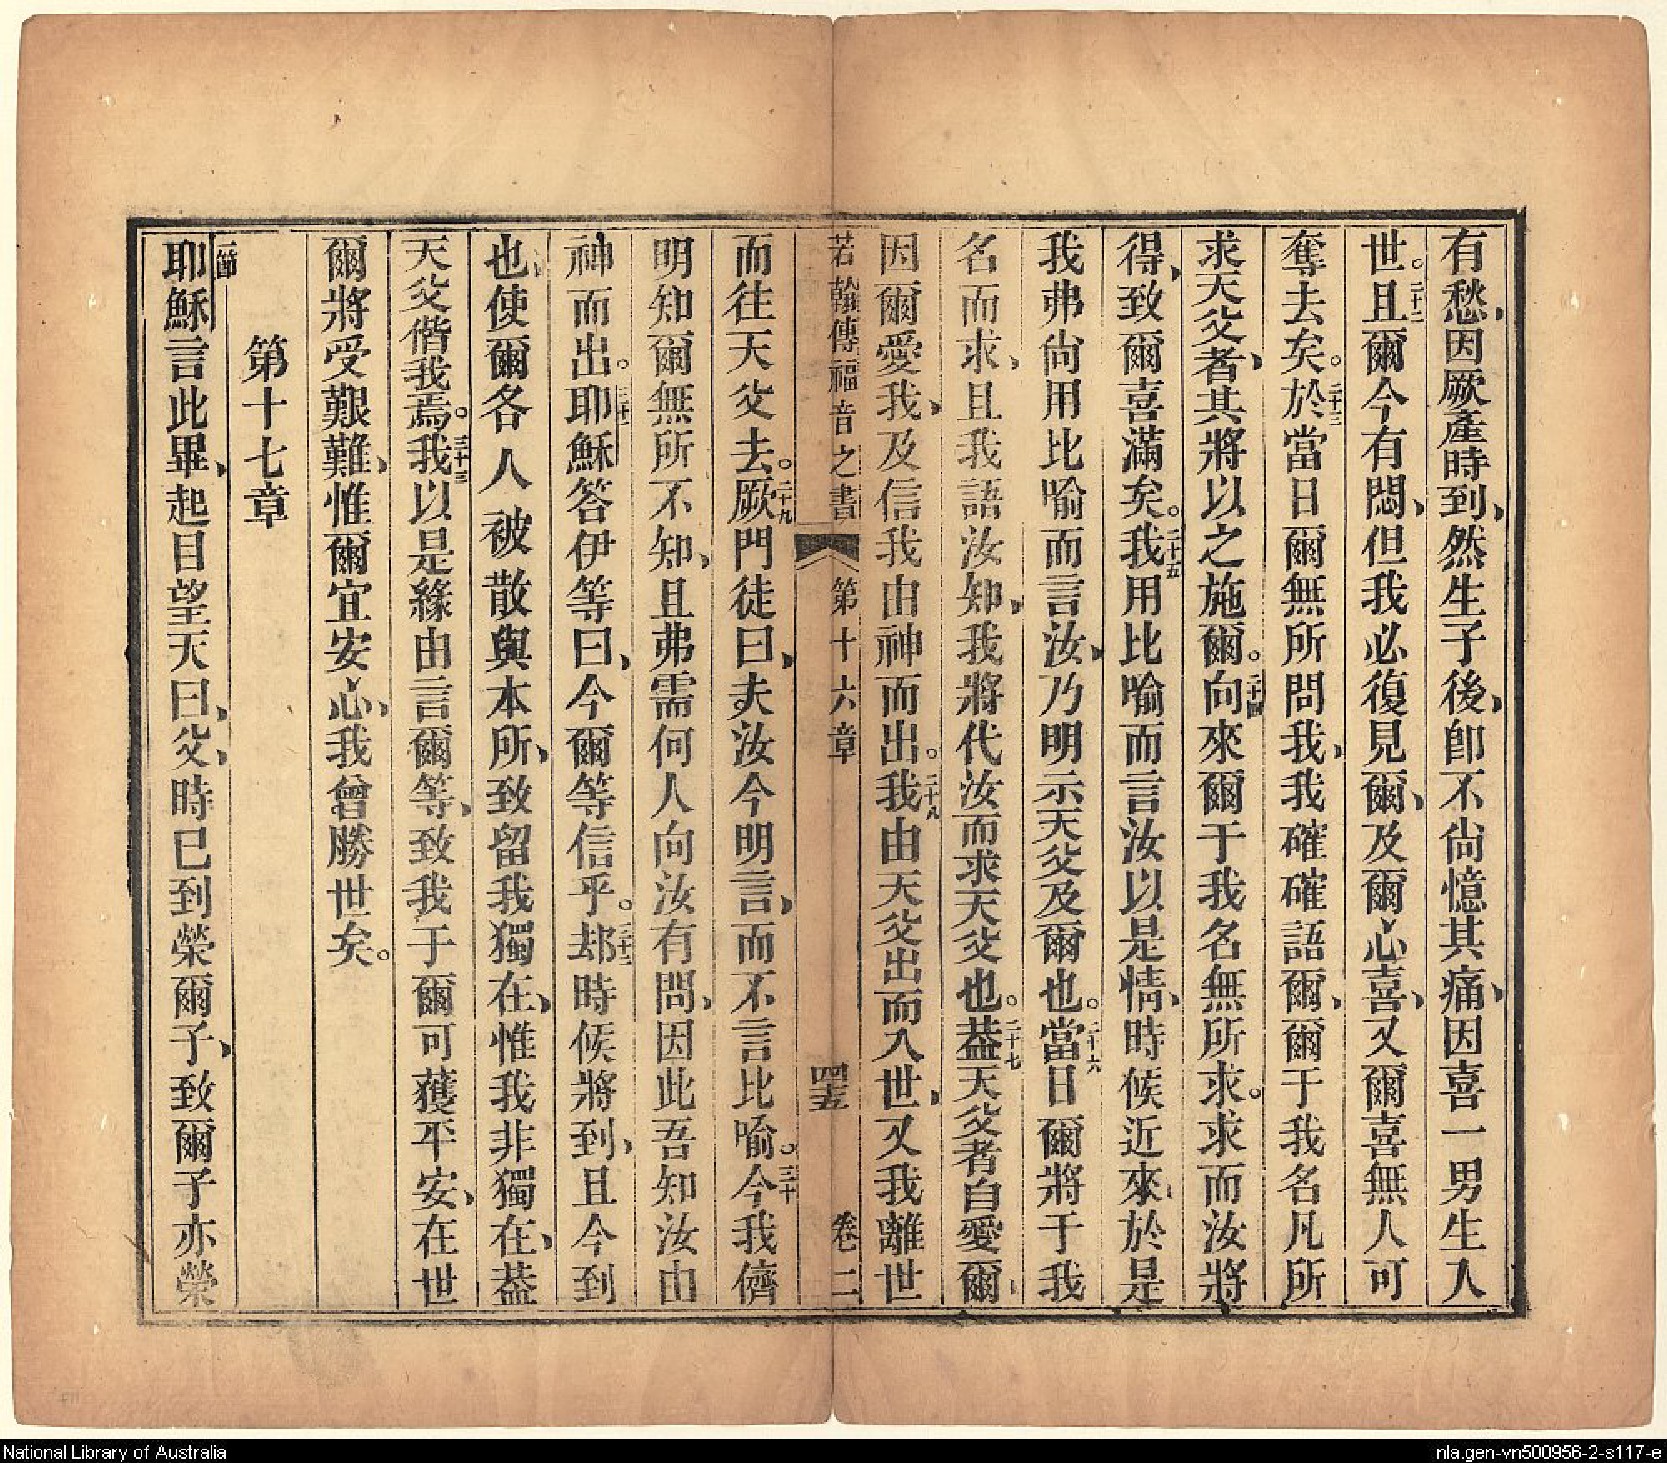 有愁、因厥產時到、然生子後、卽不尙憶其痛、因喜一男生入
世。二十二且爾今有悶、但我必復見爾、及爾心喜、又爾喜無人可
奪去矣。二十三於當日爾無所問我、我確確語爾、爾于我名凡所
求天父者、其將以之施爾。二十四向來爾于我名無所求。求而汝將
得、致爾喜滿矣。二十五我用比喻而言汝以是情、時候近來、於是
我弗尙用比喻而言汝、乃明示天父及爾也。二十六當日爾將于我
名而求、且我語汝知、我將代汝而求天父也。二十七葢天父者自愛爾、
因爾愛我、及信我由神而出。二十八我由天父出而入世、又我離世
若翰傳福音之書 第十六章 四十五 卷二
而往天父去。二十九厥門徒曰、夫汝今明言、而不言比喻。三十今我儕
明知爾無所不知、且弗需何人向汝有問、因此吾知汝由
神而出。三十一耶穌答伊等曰、今爾等信乎。三十二䢴時候將到、且今到
也、使爾各人被散與本所、致留我獨在、惟我非獨在、葢
天父偕我焉。三十三我以是緣由言爾等、致我于爾可獲平安、在世
爾將受艱難、惟爾宜安心、我曾勝世矣。
第十七章
一節耶穌言此畢、起目望天曰、父、時已到榮爾子、致爾子亦榮
National Library of Australia
nla.gen-vn500956-2-s117-e